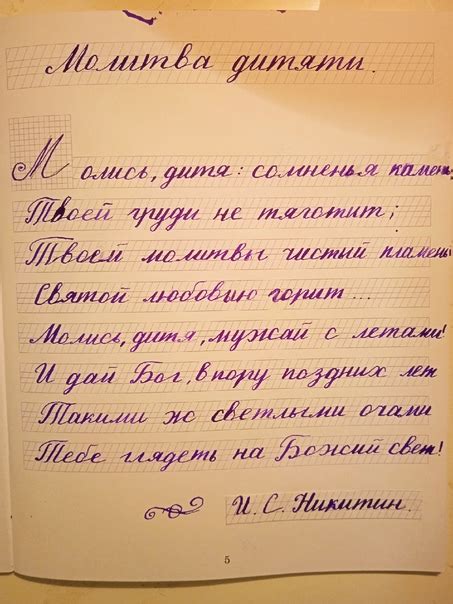 Молитва дитяти.
Молись, дитя: сомненья камень
Твоей груди не тяготит;
Твоей молитвы чистый пламень
Святой любовию горит...
Молись, дитя, мужай с летами!
И дай Бог, в пору поздних лет
Такими же светлыми очами
Тебе глядеть на Божий свет!
И. С. Никитин.
5